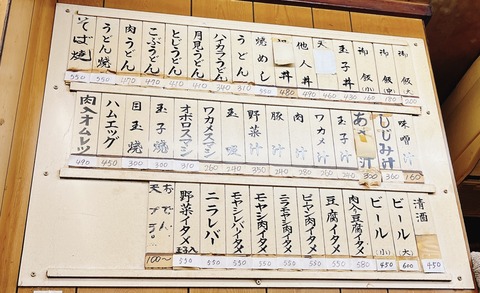 御飯(大) 200
御飯(中) 180
御飯(小) 160
玉子丼 460
天
他人丼 490
丼 480
焼めし 550
うどん 310
ハイカラうどん 340
月見うどん
とじうどん 410
こぶうどん
肉うどん 470
うどん焼 550
そば焼 550
味噌汁 160
しじみ汁 360
あさり汁 350
玉子汁 240
ワカメ汁 240
肉汁 340
豚汁 280
野菜汁
玉吸
ワカメスマシ 260
オボロスマシ 310
玉子焼 300
目玉焼 300
ハムエッグ 450
肉入オムレツ 490
清酒 450
ビール(大) 600
ビール(小) 450
肉入豆腐イタメ 580
豆腐イタメ 550
ピーマン肉イタメ 550
ニラモヤシ肉イタメ 550
モヤシ肉イタメ 550
モヤシレバイタメ 550
ニラレバー 550
野菜イタメ玉子入 550
おでん、
天プラ。 100〜